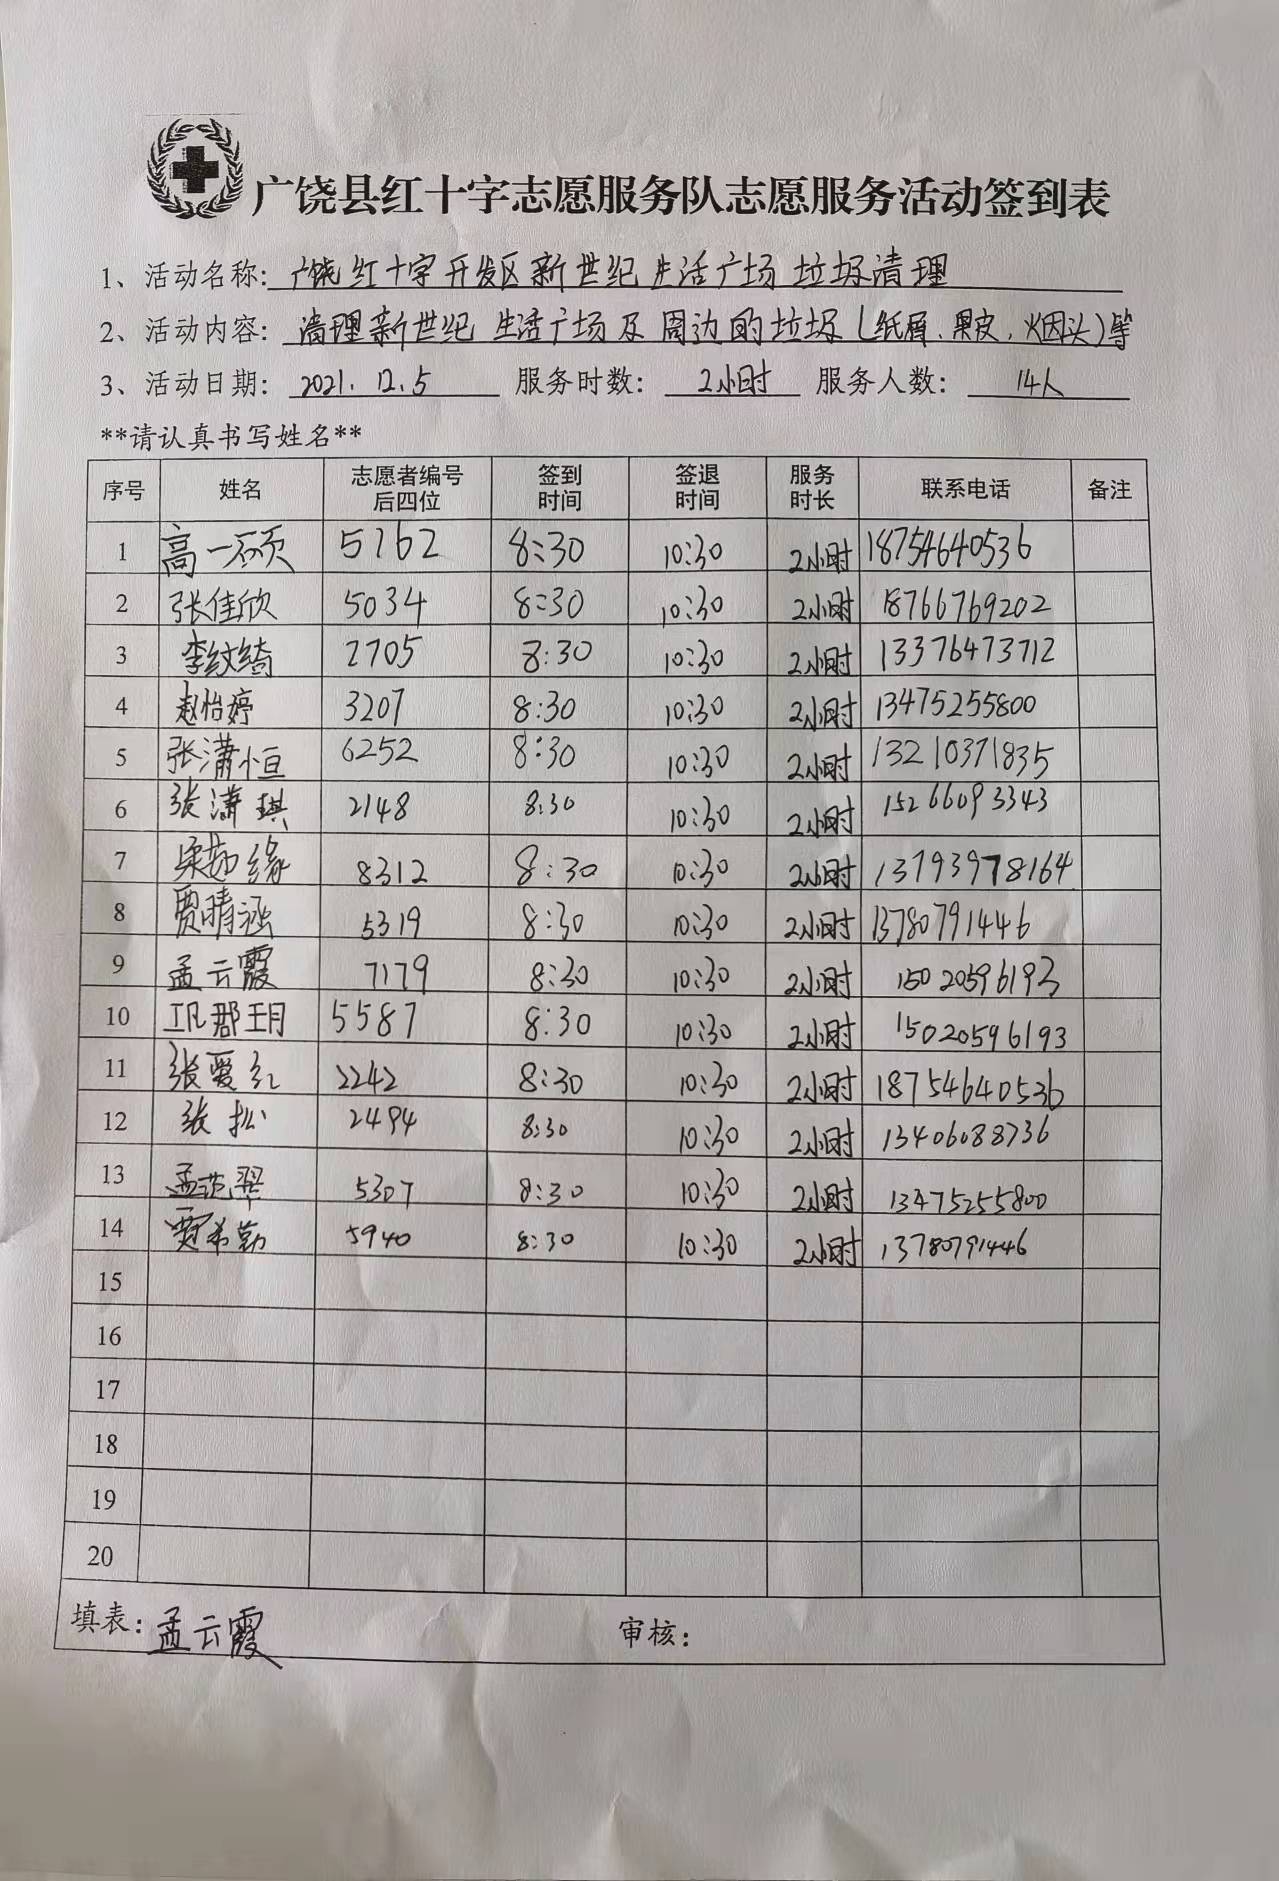 广饶县红十字志愿服务队志愿服务活动签到表
1、活动名称: 广饶红十字开发区新世纪生活广场垃圾清理
2、活动内容: 清理新世纪生活广场及周边的垃圾(纸屑、果皮、烟头)等
3、活动日期: 2021.12.5 服务时数: 2小时 服务人数: 14人
**请认真书写姓名**
序号 姓名 志愿者编号后四位 签到时间 签退时间 服务时长 联系电话 备注
1 高一硕 5762 8:30 10:30 2小时 18754640536
2 张佳欣 5034 8:30 10:30 2小时 18766769202
3 李纹绮 2705 8:30 10:30 2小时 13376473712
4 赵怡婷 3207 8:30 10:30 2小时 13475255800
5 张潇恒 6252 8:30 10:30 2小时 13210371835
6 张潇琪 2148 8:30 10:30 2小时 15266093343
7 梁茹缘 8312 8:30 10:30 2小时 13793978164
8 贾晴涵 5319 8:30 10:30 2小时 13780791446
9 孟云霞 7179 8:30 10:30 2小时 15020596193
10 5587 8:30 10:30 2小时 15020596193
11 张爱红 2242 8:30 10:30 2小时 18754640536
12 张 2494 8:30 10:30 2小时 13406088736
13 孟范翠 5307 8:30 10:30 2小时 13475255800
14 贾希勤 5940 8:30 10:30 2小时 13780791446
15
16
17
18
19
20
填表: 孟云霞 审核: